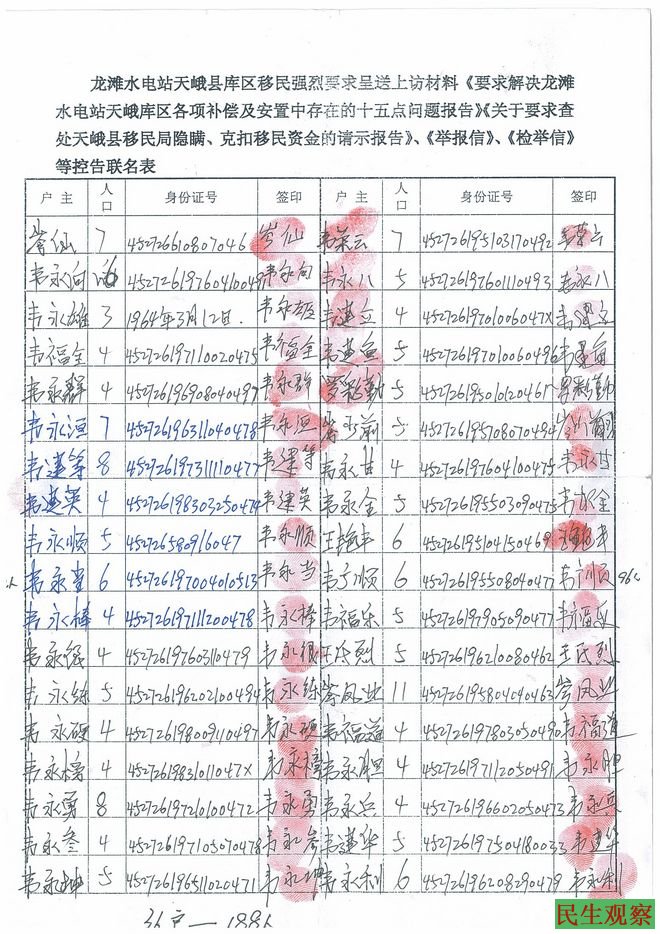 龙滩水电站天峨县库区移民强烈要求呈送上访材料《要求解决龙滩
水电站天峨库区各项补偿及安置中存在的十五点问题报告》《关于要求查
处天峨县移民局隐瞒、克扣移民资金的请示报告》、《举报信》、《检举信》
等控告联名表
户主 人口 身份证号 签印 户主 人口 身份证号 签印
岑仙 7 452726610807046 岑仙 韦荣云 7 452726195103170492 韦荣云
韦永向 韦永向 韦永八 5 452726197601110493 韦永八
韦永雄 3 1964年3月12日. 韦永雄 韦建立 4 45272619701006047X 韦建立
韦福全 4 452726197110020475 韦福全 5 452726197010060496
韦永群 4 452726196908040497 韦永群 5
韦永恒 7 452726196311040478 韦永恒 5 452726195708070494
韦建等 8 452726197311110477 韦建等 韦永甘 4 452726197604100475 韦永甘
韦建英 4 452726198303250474 韦建英 韦永全 5 452726195503090475 韦永全
韦永顺 5 452726580916047 韦永顺 6 452726195104150469
韦永当 6 452726197004010513 韦永当 6 452726195508040470
韦永棒 4 452726197111200478 韦永棒 韦福乐 5 452726197905090477 韦福乐
4 452726197603110479 5 452726196210080462
韦永练 5 452726196202100494 韦永练 岑凤业 11 452726195804040463 岑凤业
韦永硬 4 452726198009110497 韦永硬 韦福道 4 452726197803050490 韦福道
4 韦永胆 4 452726197112050491 韦永胆
韦永勇 8 452726197210100472 韦永勇 韦永兵 4 452726196602050473 韦永兵
韦永叁 4 452726197105070478 韦永叁 韦建华 5 452726197504180033 韦建华
韦永坤 5 452726196511020471 韦永坤 韦永利 6 452726196208290479 韦永利
民生观察